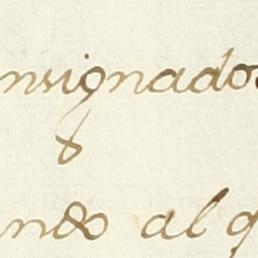 nsignados
ando al q